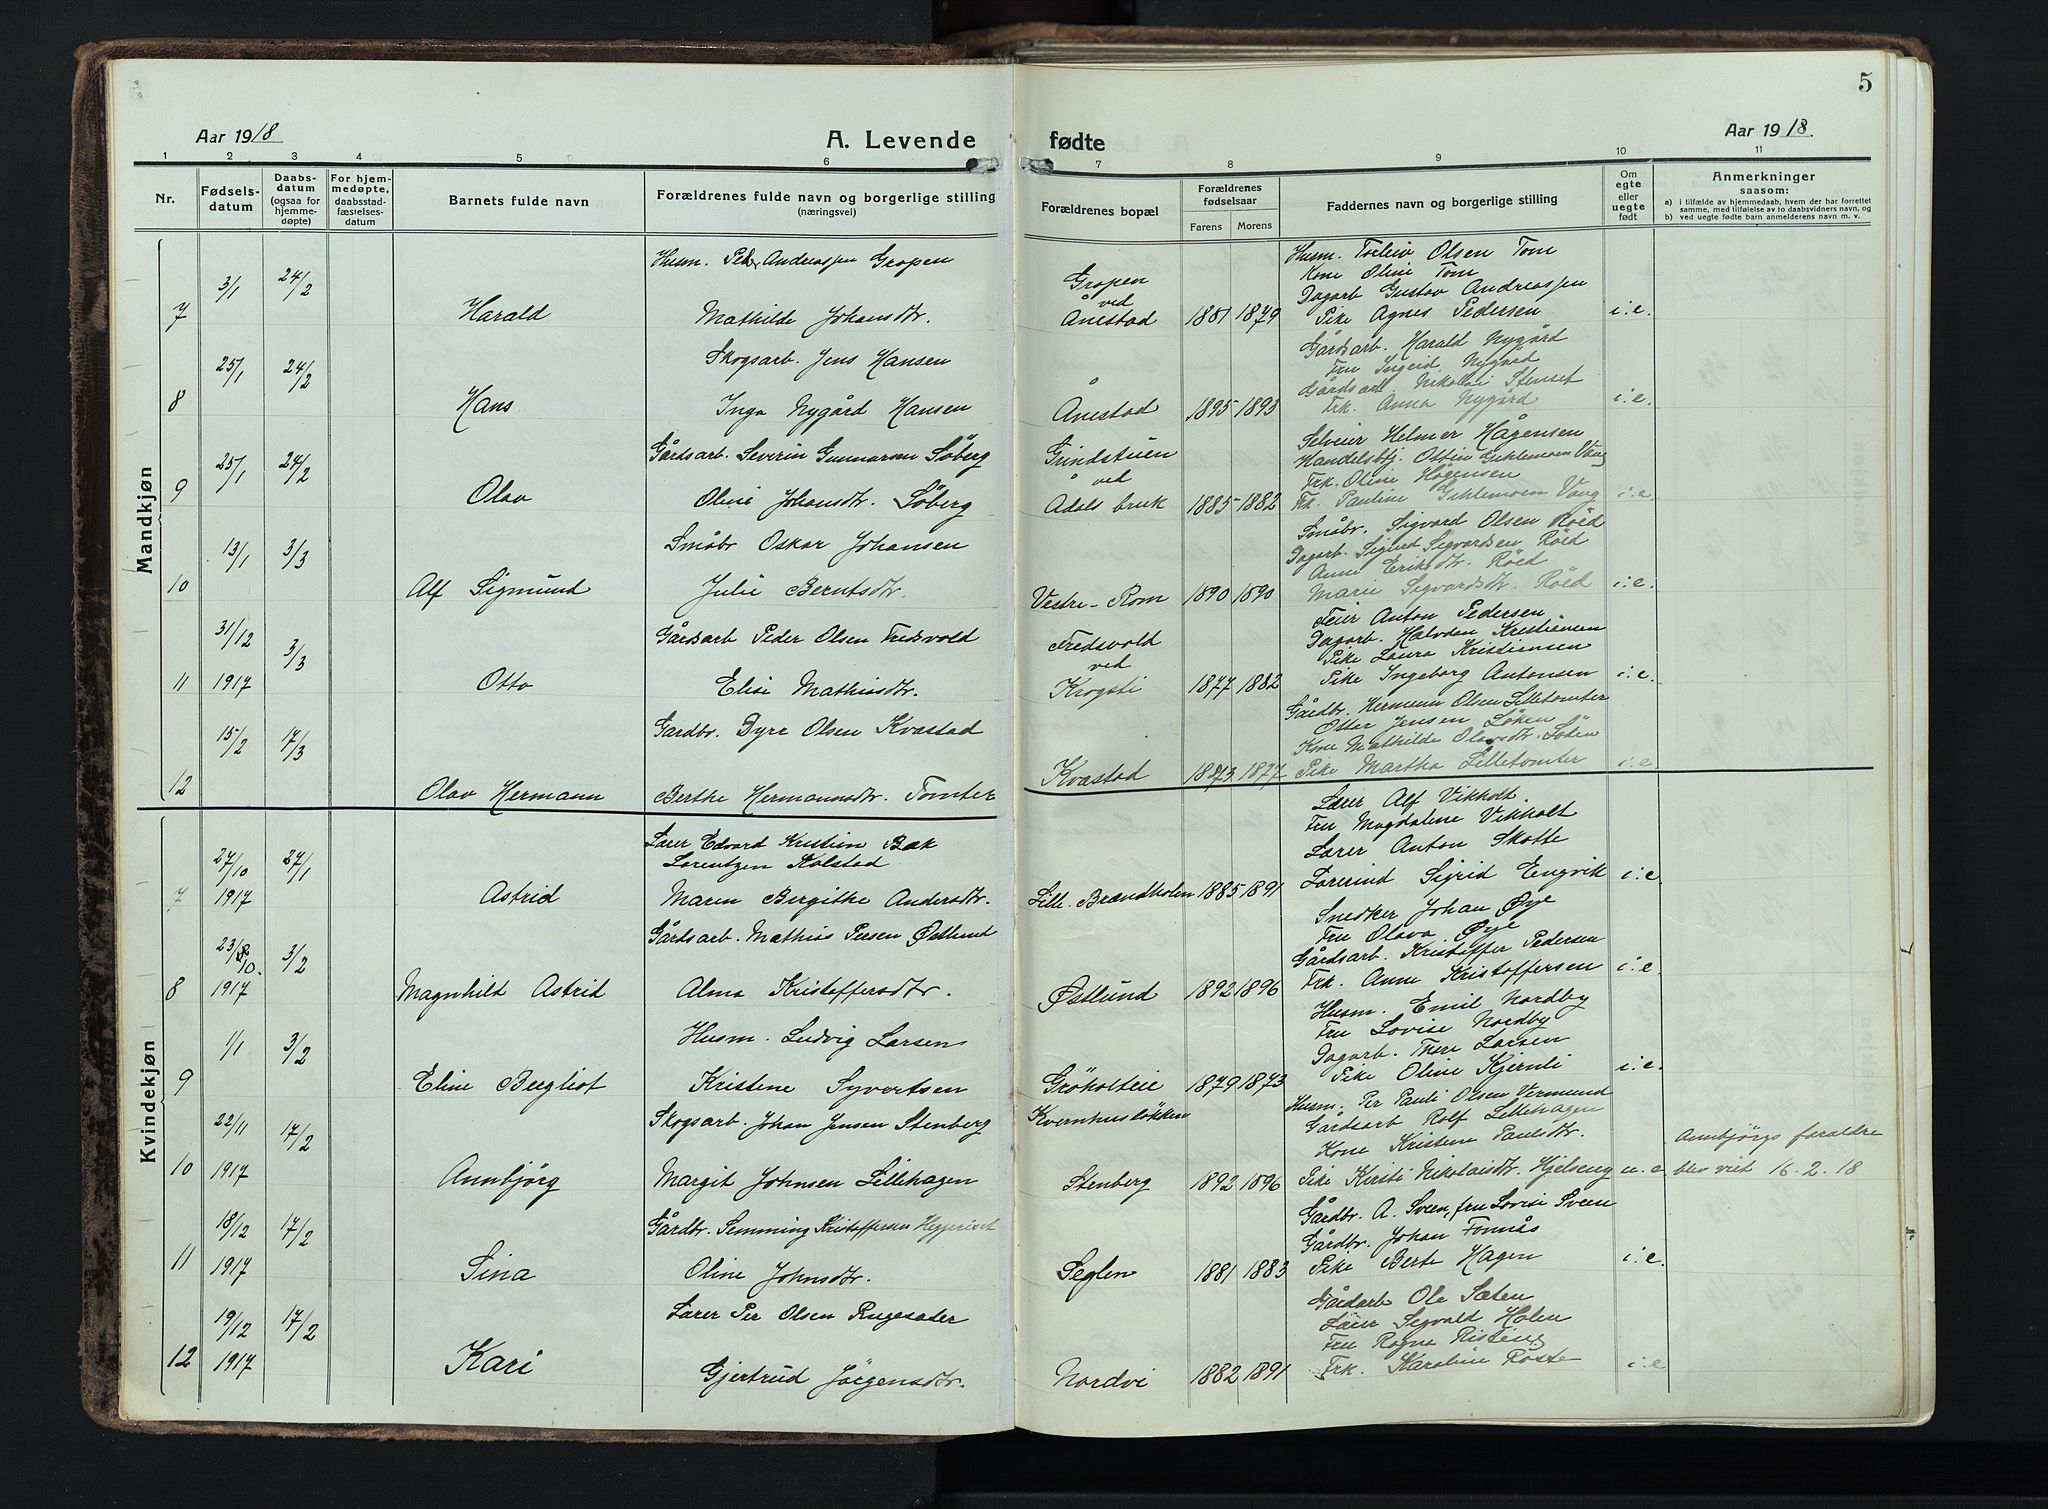 5
Aar 1918
A. Levende
fødte
Aar 1918.
1 2 3 4 5 6 7 8 9 10 11
Nr.
Fødsels-
datum
Daabs-
datum
(ogsaa for
hjemme-
døpte)
For hjem-
medøpte,
daabsstad-
fæstelses-
datum
Barnets fulde navn
Forældrenes fulde navn og borgerlige stilling
(næringsvei)
Forældrenes bopæl
Forældrenes
fødselsaar
Farens Morens
Faddernes navn og borgerlige stilling
Om
egte
eller
uegte
født
Anmerkninger
saasom:
a) i tilfælde av hjemmedaab, hvem der har forrettet
samme, med tilføielse av to daabsvidners navn, og
b) ved uegte fødte barn anmelderens navn m. v.
Mandkjøn
7 3/1 24/2 Harald
Husm. Peder Andreassen Gropen
Mathilde Johansdtr.
Gropen
ved
Ånestad 1881 1879
Husm. Torleiv Olsen Tom
Kone Oline Tom
Dagarb. Gustav Andreassen
Pike Agnes Pedersen i.e.
8 25/1 24/2 Hans
Skogsarb. Jens Hansen
Inga Nygård Hansen
Ånestad 1895 1893
Gårdsarb. Harald Nygård
Fru Ingeid Nygård
Gårdsarb. Nikolai Stenset
Frk. Anna Nygård i.e.
9 25/1 24/2 Olav
Gårdsarb. Severin Gunnarsen Söberg
Oline Johansdtr. Söberg
Grindstuen
ved
Ådals bruk 1885 1882
Selveier Helmer Hågensen
Handelsbtj. Ottin Giklemoen Vang
Frk. Oline Hågensen
Frk. Pauline Giklemoen Vang i.e.
10 13/1 3/3 Alf Sigmund
Småbr Oskar Johansen
Julie Berntsdtr.
Vestre-Rom 1890 1890
Småbr. Sigvard Olsen Röed
Dagarb. Sigurd Sigvardsen Röed
Anne Eriksdtr. Röed
Marie Sigvardsdtr. Röed i.e.
11 31/12 1917 3/3 Otto
Gårdsarb Peder Olsen Fredsvold
Elise Mathiasdtr.
Fredsvold
ved
Krogsti 1877 1882
Feier Anton Pedersen
Dagarb. Halvdan Kristiansen
Pike Laura Kristiansen
Pike Ingeborg Antonsen i.e.
12 15/2 17/3 Olav Hermann
Gardbr. Byre Olsen Kvastad
Berthe Hermannsdtr. Tomter
Kvastad 1873 1877
Gårdbr. Hermann Olsen Lilletomter
Otter Jensen Löken
Kone Mathilde Olavsdtr. Löken
Pike Martha Lilletomter i.e.
Kvindekjøn
7 27/10 1917 27/1 Astrid
Lærer Edvard Kristian Bak
Lorentzen Kolstad
Maren Bergithe Andersdtr.
Lille. Brændholen 1885 1891
Lærer Alf Vikholt.
Fru Magdalene Vikholt
Lærer Anton Skotte
Lærerind Sigrid Engvik i.e.
8 23/10. 1917 3/2 Magnhild Astrid
Gårdsarb. Mathias Persen Østlund
Alma Kristoffersdtr.
Østlund 1892 1896
Snedker Johan Øye
Fru Olava Øye
Gårdsarb. Kristoffer Pedersen
Frk. Anne Kristoffersen i.e.
9 1/1 3/2 Eline Bergliot
Husm. Ludvig Larsen
Kristene Syvertsen
Gröholteie 1879 1873
Husm. Emil Nordby
Fru Lovise Nordby
Dagarb. Thore Larsen
Pike Oline Kjernli i.e.
10 22/11 1917 17/2 Annbjörg
Skogsarb. Johan Jensen Stenberg
Margit Johnsen Lillehagen
Kvernhuslökken
Stenberg 1892 1896
Husm. Per Pauli Olsen Vermund
Gårdsarb Rolf Lillehagen
Kone Kristene Paulsdtr.
Pike Kirsti Nikolaisdtr. Hjelseng u.e.
Annbjörgs foraldre
blev viet 16.2.18
11 18/12 1917 17/2 Sina
Gårdbr. Simming Kristoffersen Heggeriset
Oline Johnsdtr.
Seglen 1881 1883
Gårdbr. A. Sveen, fru Lovise Sveen
Gårdbr. Johan Fonnås
Pike Berte Hagen i.e.
12 19/12 1917 17/2 Kari
Lærer Per Olsen Rugesæter
Gjertrud Jörgensdtr.
Nordvi 1882 1891
Gårdarb Ole Sæten
Lærer Sigvald Holen
Fru Ragna Risting
Frk. Karoline Röste i.e